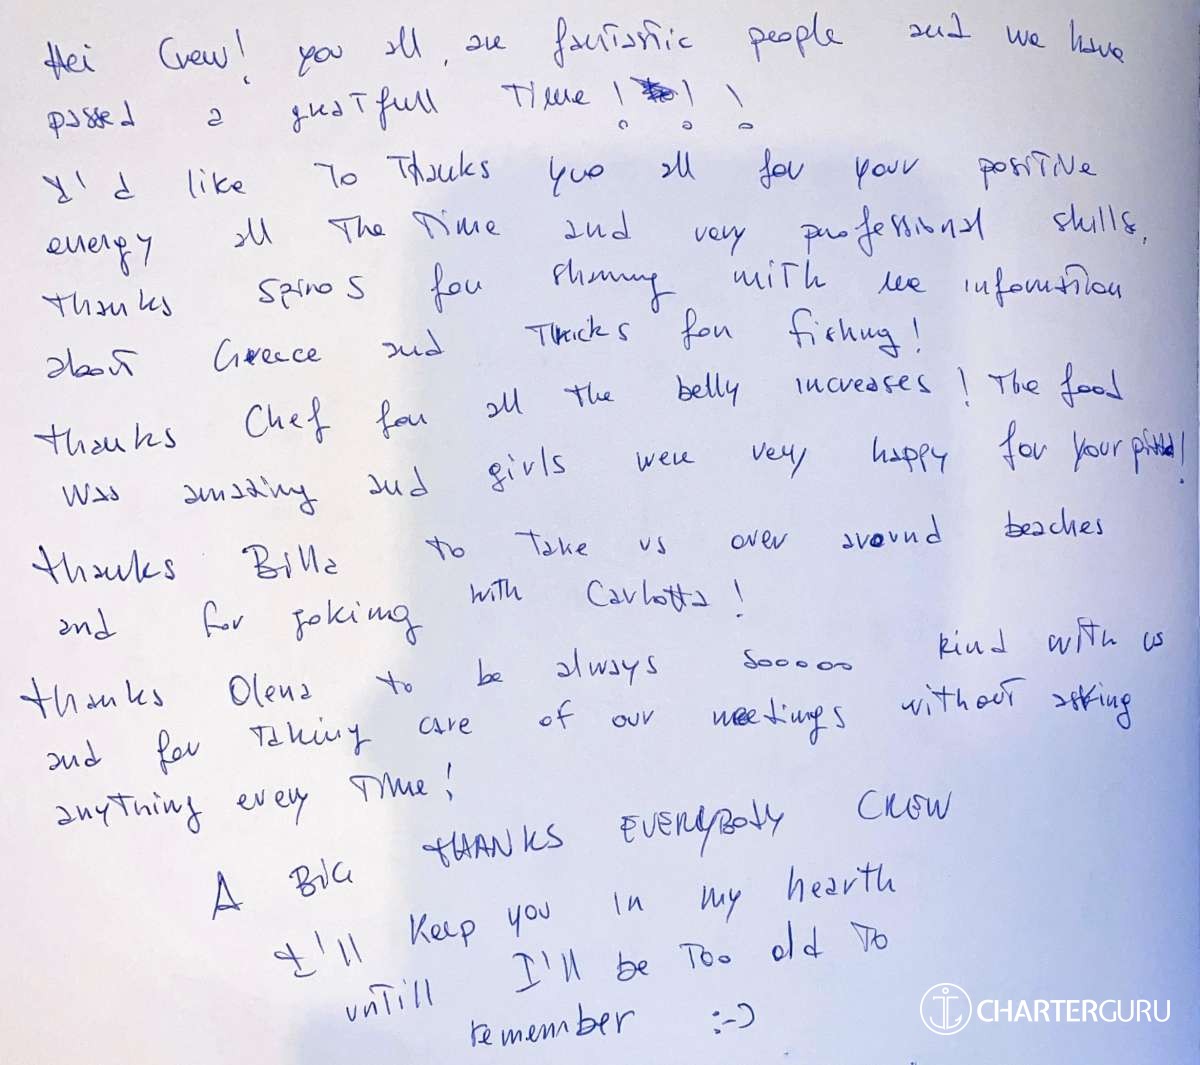 Hei Crew! you all are fantastic people and we have
passed a greatfull Time ! ! !
I'd like To Thanks yuo all for your positive
energy all The Time and very professional skills.
thanks Spiros for sharing with me information
about Greece and Tricks for fishing!
thanks Chef for all the belly increases! The food
was amazing and girls were very happy for your pizza!
thanks Billa to Take us over around beaches
and for joking with Carlotta!
thanks Olena to be always sooooo kind with us
and for Taking care of our meetings without asking
anything every Time!
A BIG THANKS EVERYBODY CREW
I'll Keep you in my hearth
untill I'll be Too old To
remember :-)
CHARTERGURU